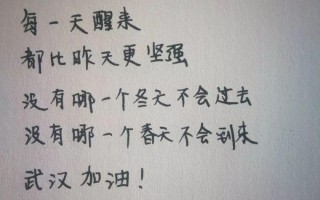 每一天醒来
都比昨天更坚强
没有哪一个冬天不会过去
没有哪一个春天不会到来
武汉加油!